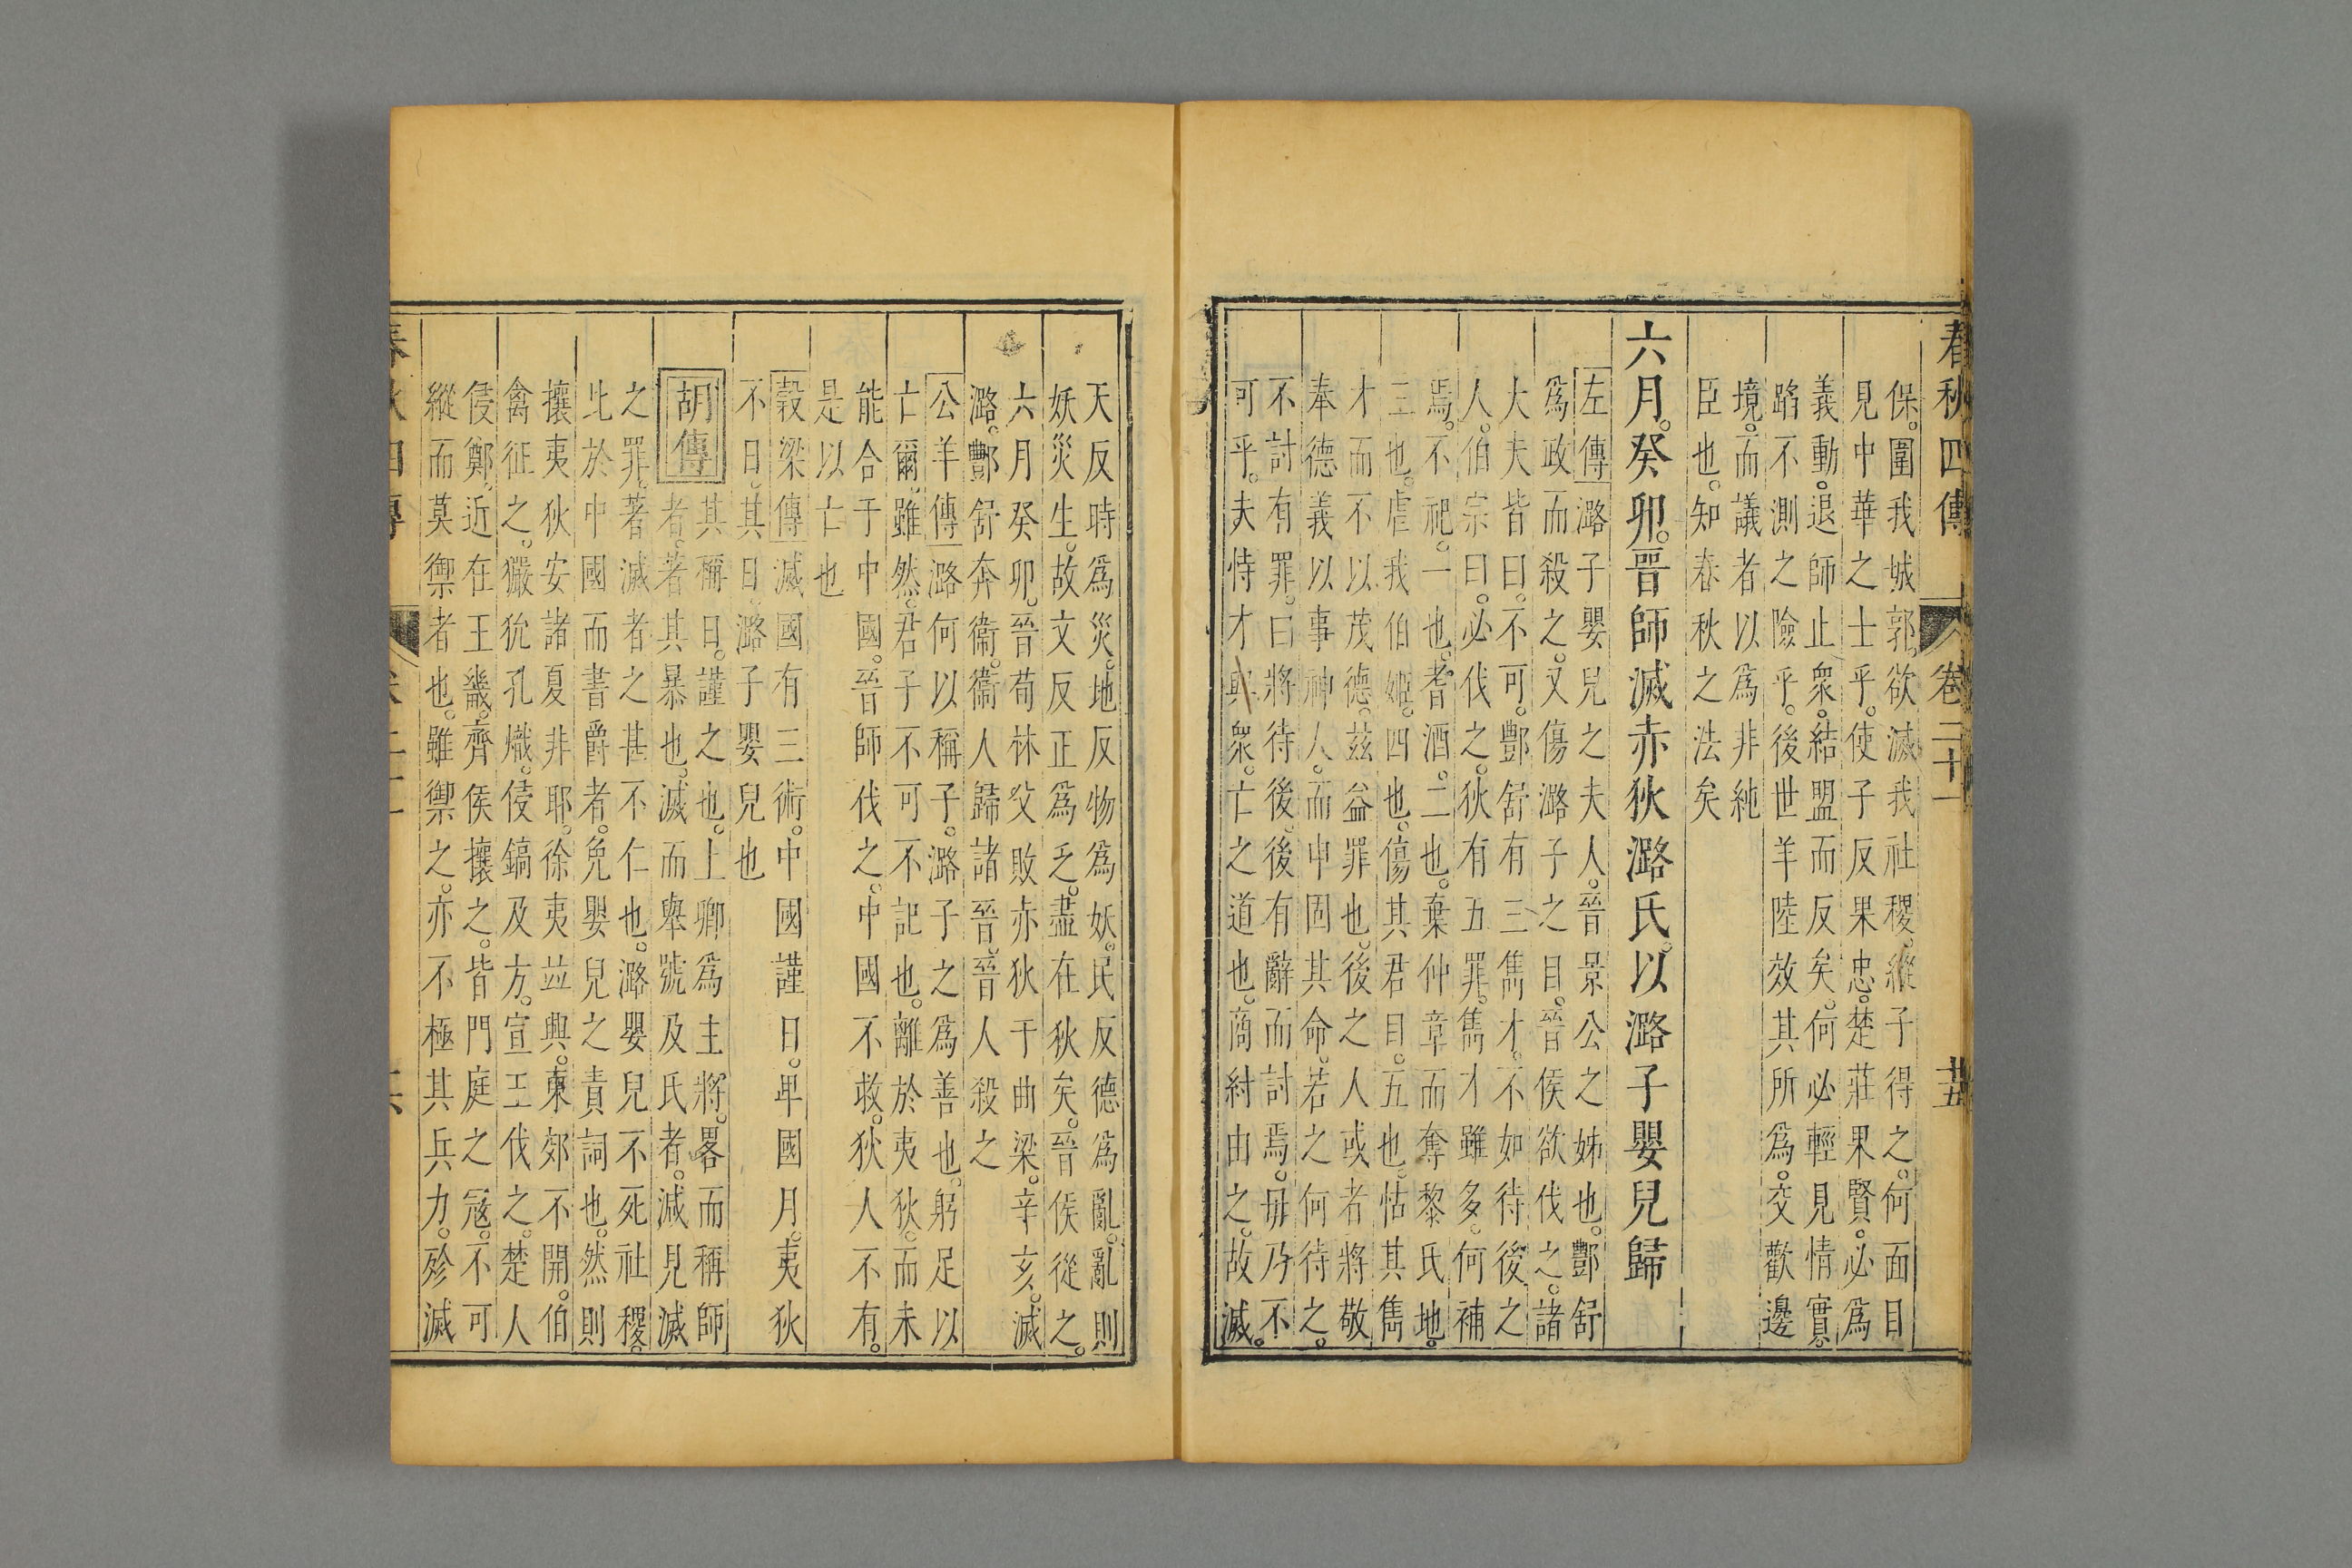 春秋四傳 卷二十一 十五
保。圍我城郭。欲滅我社稷。縱子得之。何面目
見中華之士乎。使子反果忠。楚莊果賢。必爲
義動。退師止衆。結盟而反矣。何必輕見情實。
蹈不測之險乎。後世羊陸效其所爲。交歡邊
境。而議者以爲非純
臣也。知春秋之法矣
六月。癸卯。晋師滅赤狄潞氏。以潞子嬰兒歸
左傳 潞子嬰兒之夫人。晉景公之姊也。酆舒
爲政而殺之。又傷潞子之目。晉侯欲伐之。諸
大夫皆曰。不可。酆舒有三雋才。不如待後之
人。伯宗曰。必伐之。狄有五罪。雋才雖多。何補
焉。不祀。一也。耆酒。二也。棄仲章而奪黎氏地。
三也。虐我伯姬。四也。傷其君目。五也。怙其雋
才而不以茂德。茲益罪也。後之人或者將敬
奉德義以事神人。而申固其命。若之何待之。
不討有罪。曰將待後。後有辭而討焉。毋乃不
可乎。夫恃才與衆。亡之道也。商紂由之。故滅。
天反時爲災。地反物爲妖。民反德爲亂。亂則
妖災生。故文反正爲乏。盡在狄矣。晉侯從之。
六月癸卯。晉荀林父敗赤狄于曲梁。辛亥。滅
潞。酆舒奔衞。衞人歸諸晉。晉人殺之
公羊傳 潞何以稱子。潞子之爲善也。躬足以
亡爾。雖然。君子不可不記也。離於夷狄。而未
能合于中國。晉師伐之。中國不救。狄人不有。
是以亡也
穀梁傳 滅國有三術。中國謹日。卑國月。夷狄
不日。其日。潞子嬰兒也
胡傳 其稱日。謹之也。上卿爲主將。畧而稱師
者。著其暴也。滅而舉號及氏者。滅見滅
之罪。著滅者之甚不仁也。潞嬰兒不死社稷。
比於中國而書爵者。免嬰兒之責詞也。然則
攘夷狄安諸夏非耶。徐夷並興。東郊不開。伯
禽征之。玁狁孔熾。侵鎬及方。宣王伐之。楚人
侵鄭。近在王畿。齊侯攘之。皆門庭之寇。不可
縱而莫禦者也。雖禦之。亦不極其兵力。殄滅
春秋四傳